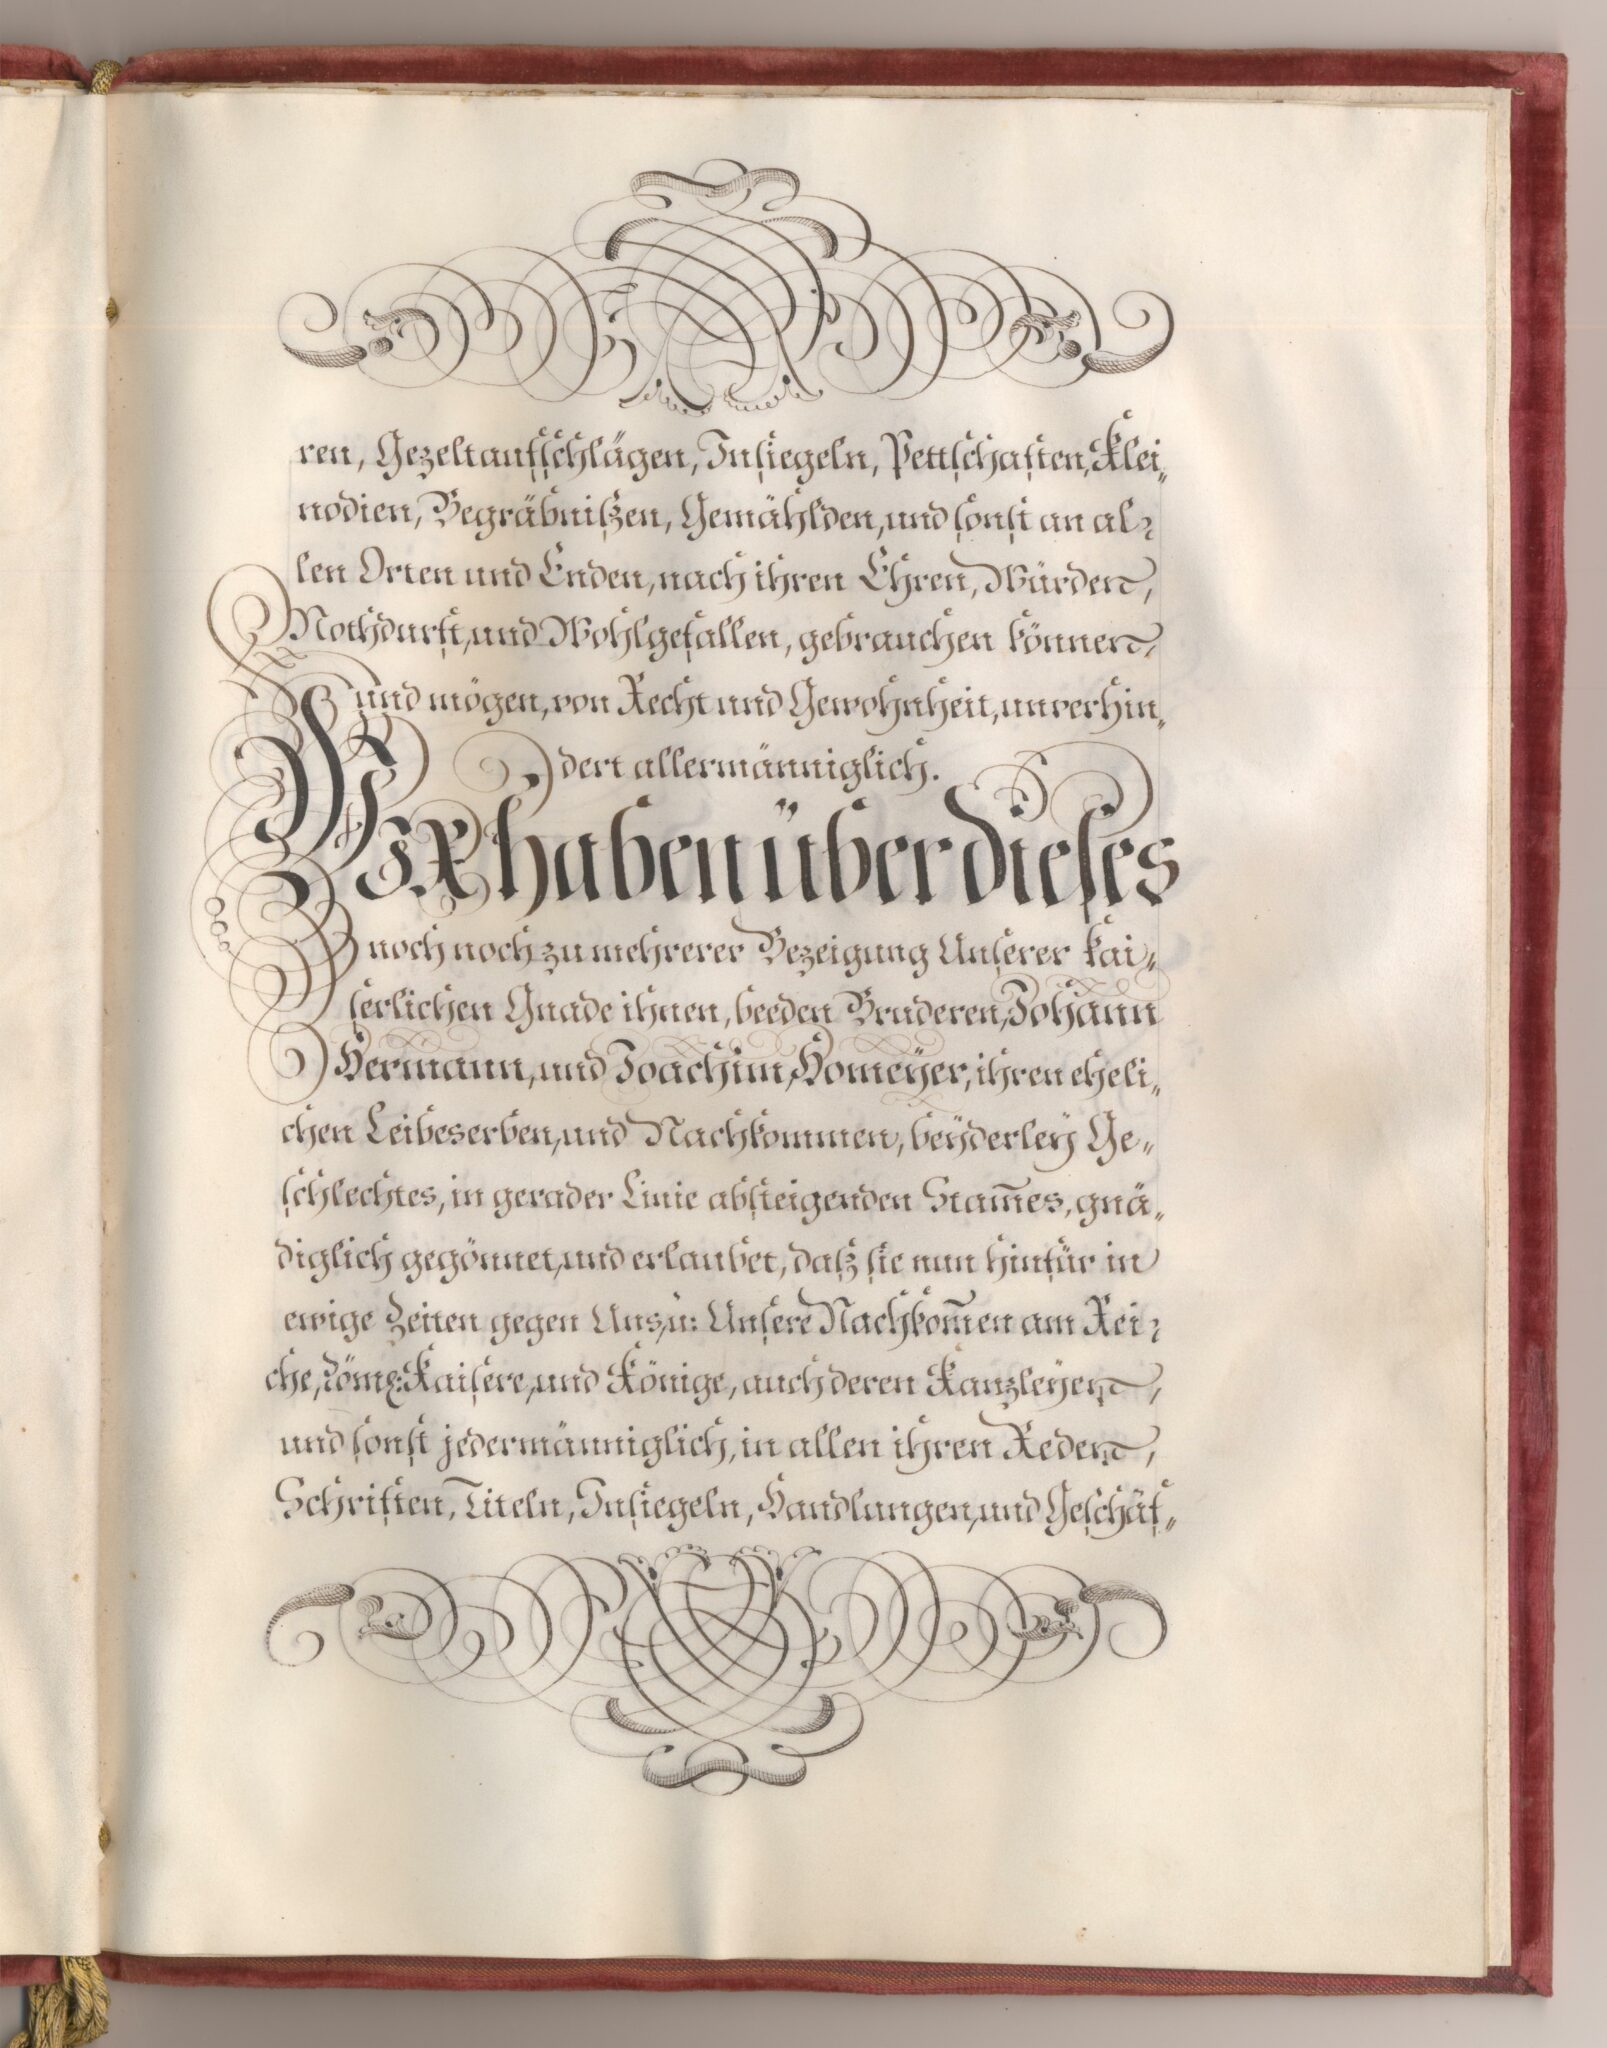 ren, Gezeltaufschlägen, Insiegeln, Pettschaften, Klei„
nodien, Begräbnißen, Gemählden, und sonst an al„
len Orten und Enden, nach ihren Ehren, Würden,
Nothdurft, und Wohlgefallen, gebrauchen können,
und mögen, von Recht und Gewohnheit, unverhin„
dert allermänniglich.
Wir haben über dieses
noch noch zu mehrerer Bezeigung Unserer kai„
serlichen Gnade ihnen, beeden Bruderen, Johann
Hermann, und Joachim Homeÿer, ihren eheli„
chen Leibeserben, und Nachkommen, beÿderleÿ Ge„
schlechtes, in gerader Linie absteigenden Stam̄es, gnä„
diglich gegönnet, und erlaubet, daß sie nun hinfür in
ewige Zeiten gegen Uns, u: Unsere Nachkom̄en am Rei„
che, röm: Kaisere, und Könige, auch deren Kanzleÿen,
und sonst jedermänniglich, in allen ihren Reden,
Schriften, Titeln, Insiegeln, Handlungen, und Geschäf„